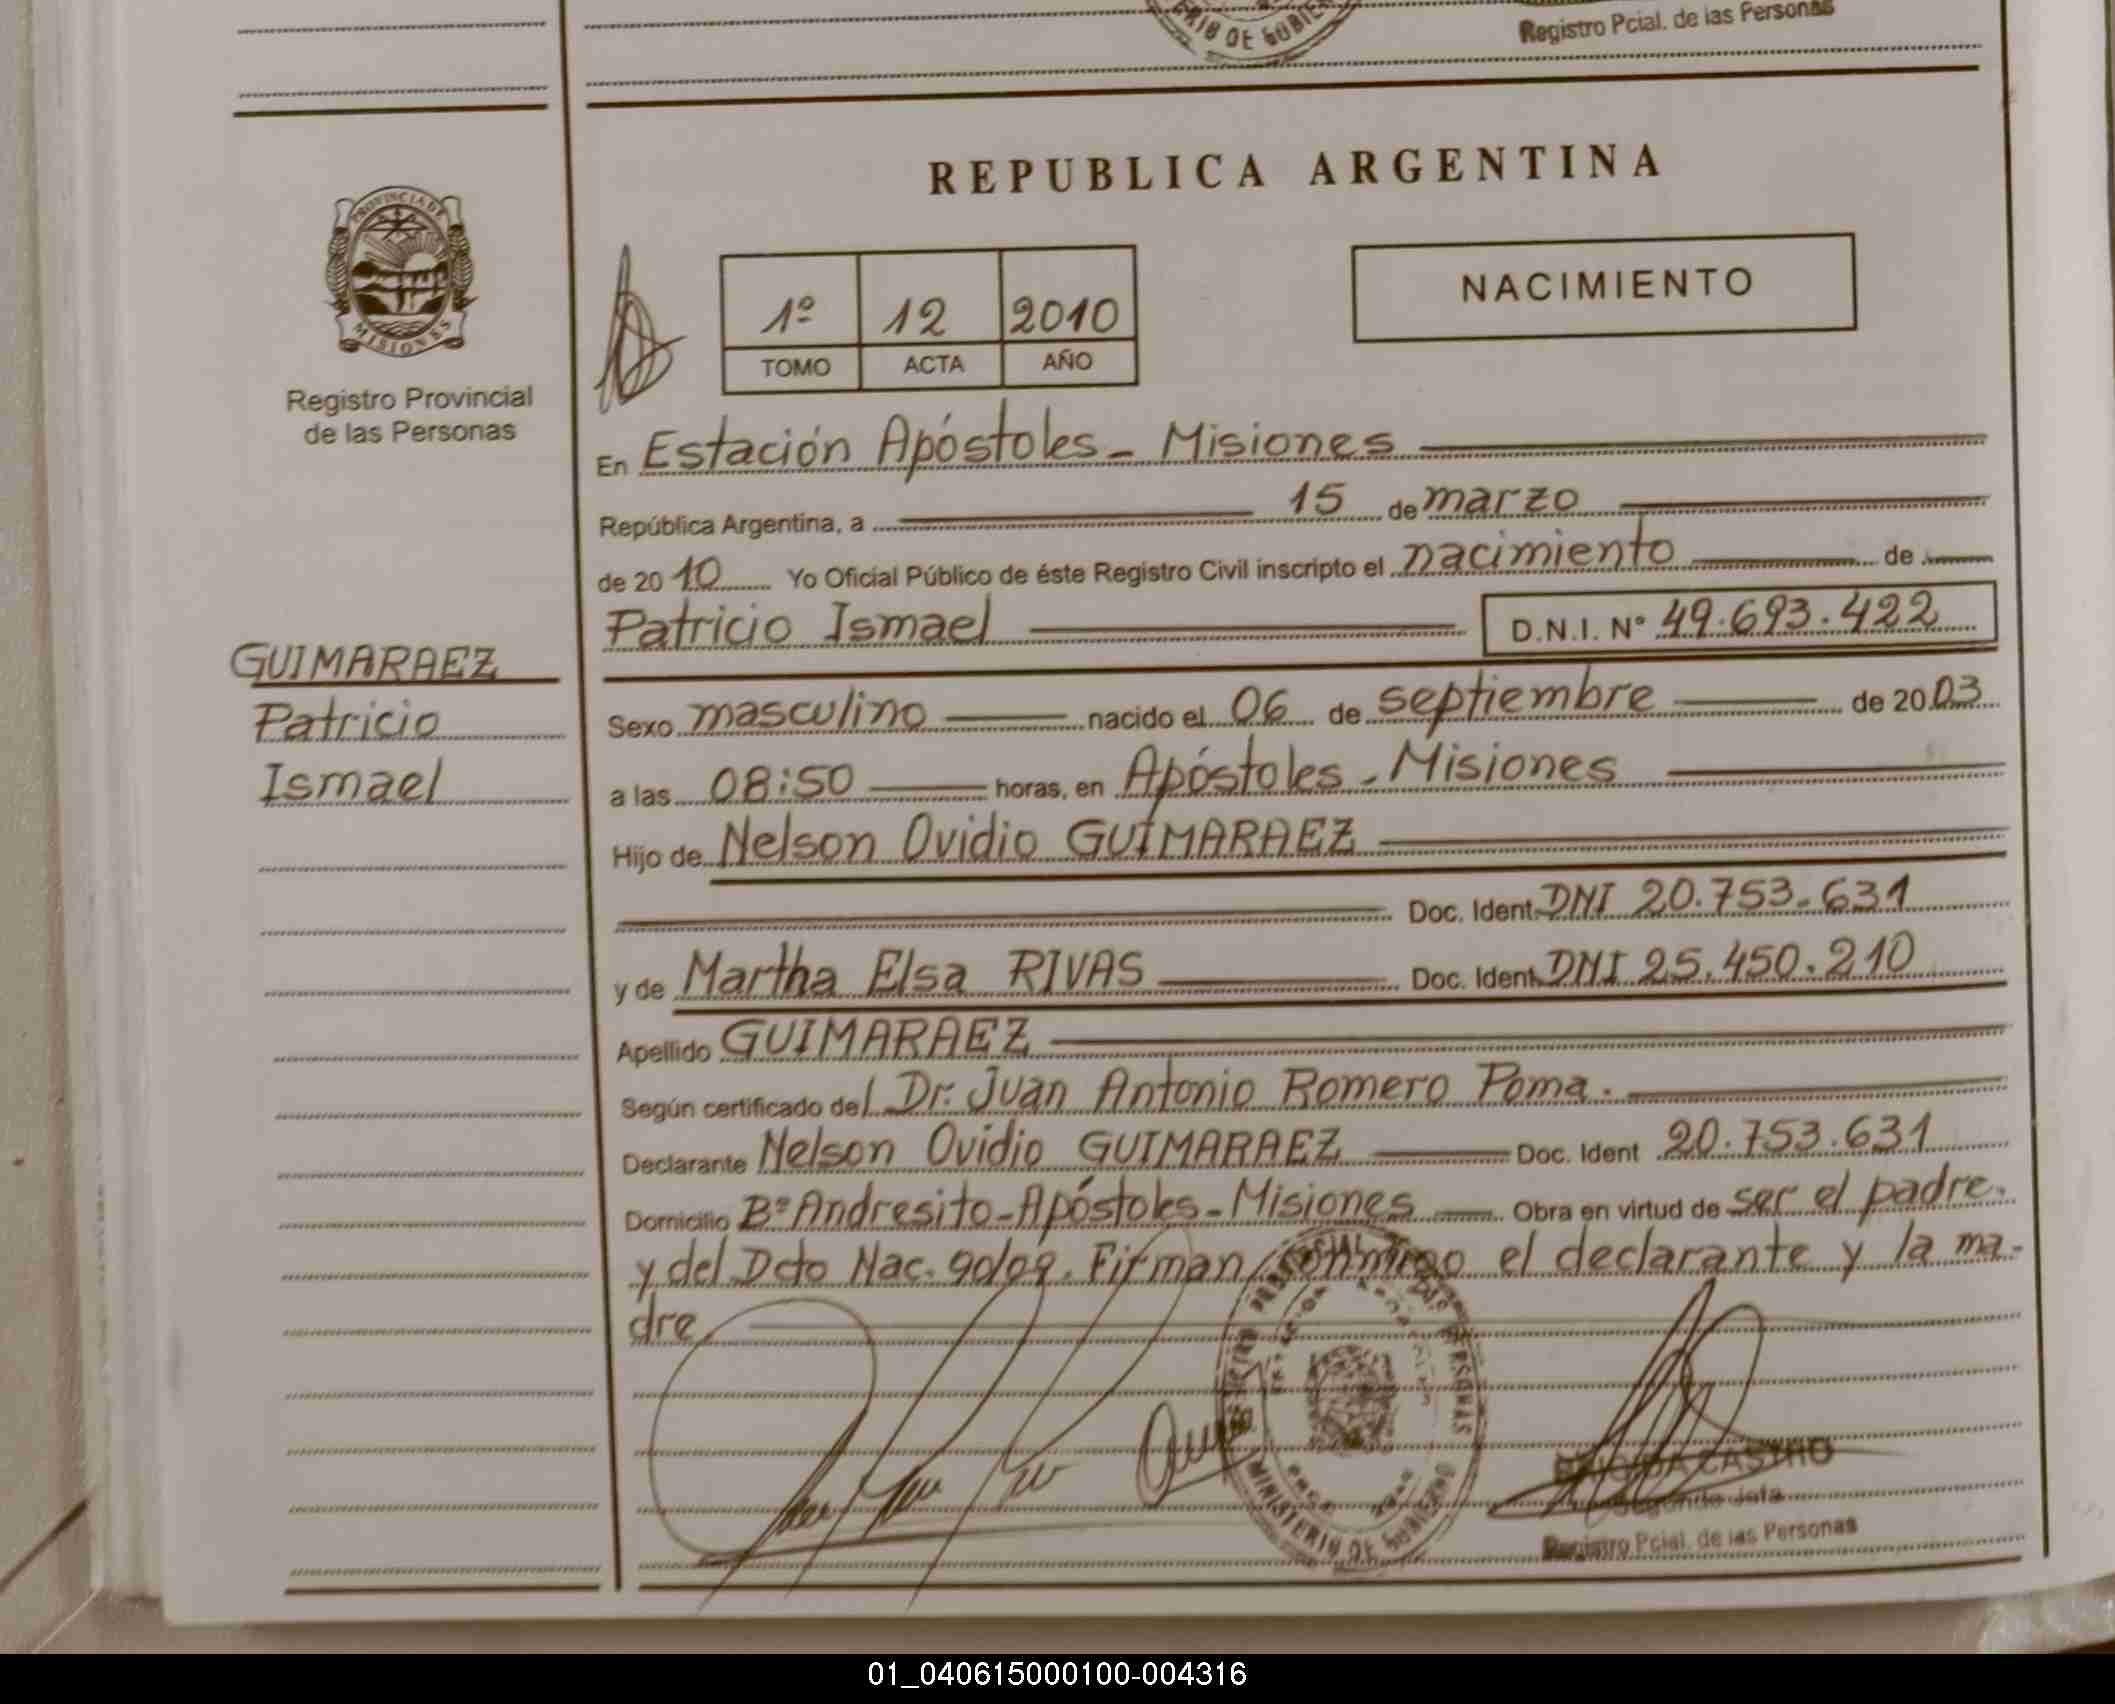 Registro Pcial. de las Personas
REPUBLICA ARGENTINA
PROVINCIA DE
MISIONES
Registro Provincial
de las Personas
1º 12 2010
TOMO ACTA AÑO
NACIMIENTO
En Estación Apóstoles - Misiones
República Argentina, a 15 de marzo
de 2010 Yo Oficial Público de éste Registro Civil inscripto el nacimiento de
Patricio Ismael D.N.I. Nº 49.693.422
GUIMARAEZ
Patricio
Ismael
Sexo masculino nacido el 06 de septiembre de 2003
a las 08:50 horas, en Apóstoles - Misiones
Hijo de Nelson Ovidio GUIMARAEZ
Doc. Ident DNI 20.753.631
y de Martha Elsa RIVAS Doc. Ident DNI 25.450.210
Apellido GUIMARAEZ
Según certificado del Dr. Juan Antonio Romero Poma.
Declarante Nelson Ovidio GUIMARAEZ Doc. Ident 20.753.631
Domicilio Bº Andresito - Apóstoles - Misiones Obra en virtud de ser el padre.
y del Dcto Nac. 90/09. Firman conmigo el declarante y la ma-
dre
MINISTERIO DE GOBIERNO
CASTRO
Segundo Jefe
Registro Pcial. de las Personas
01_040615000100-004316